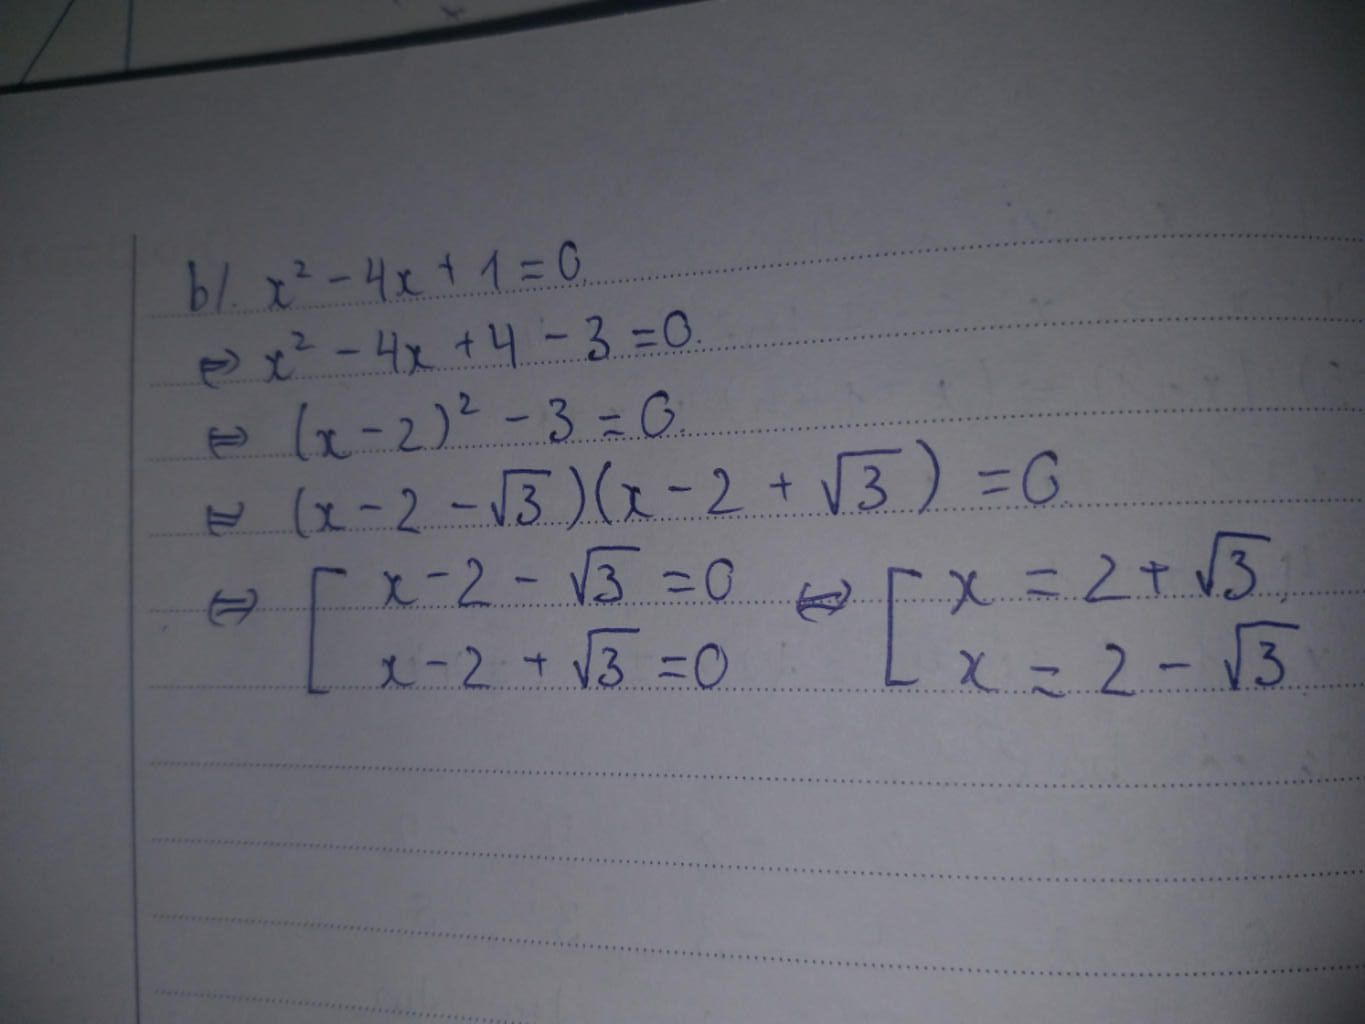 b/. x² - 4x + 1 = 0
⇔ x² - 4x + 4 - 3 = 0.
⇔ (x - 2)² - 3 = 0.
⇔ (x - 2 - √3)(x - 2 + √3) = 0
⇔ [ x - 2 - √3 = 0 ⇔ [ x = 2 + √3
x - 2 + √3 = 0 x = 2 - √3